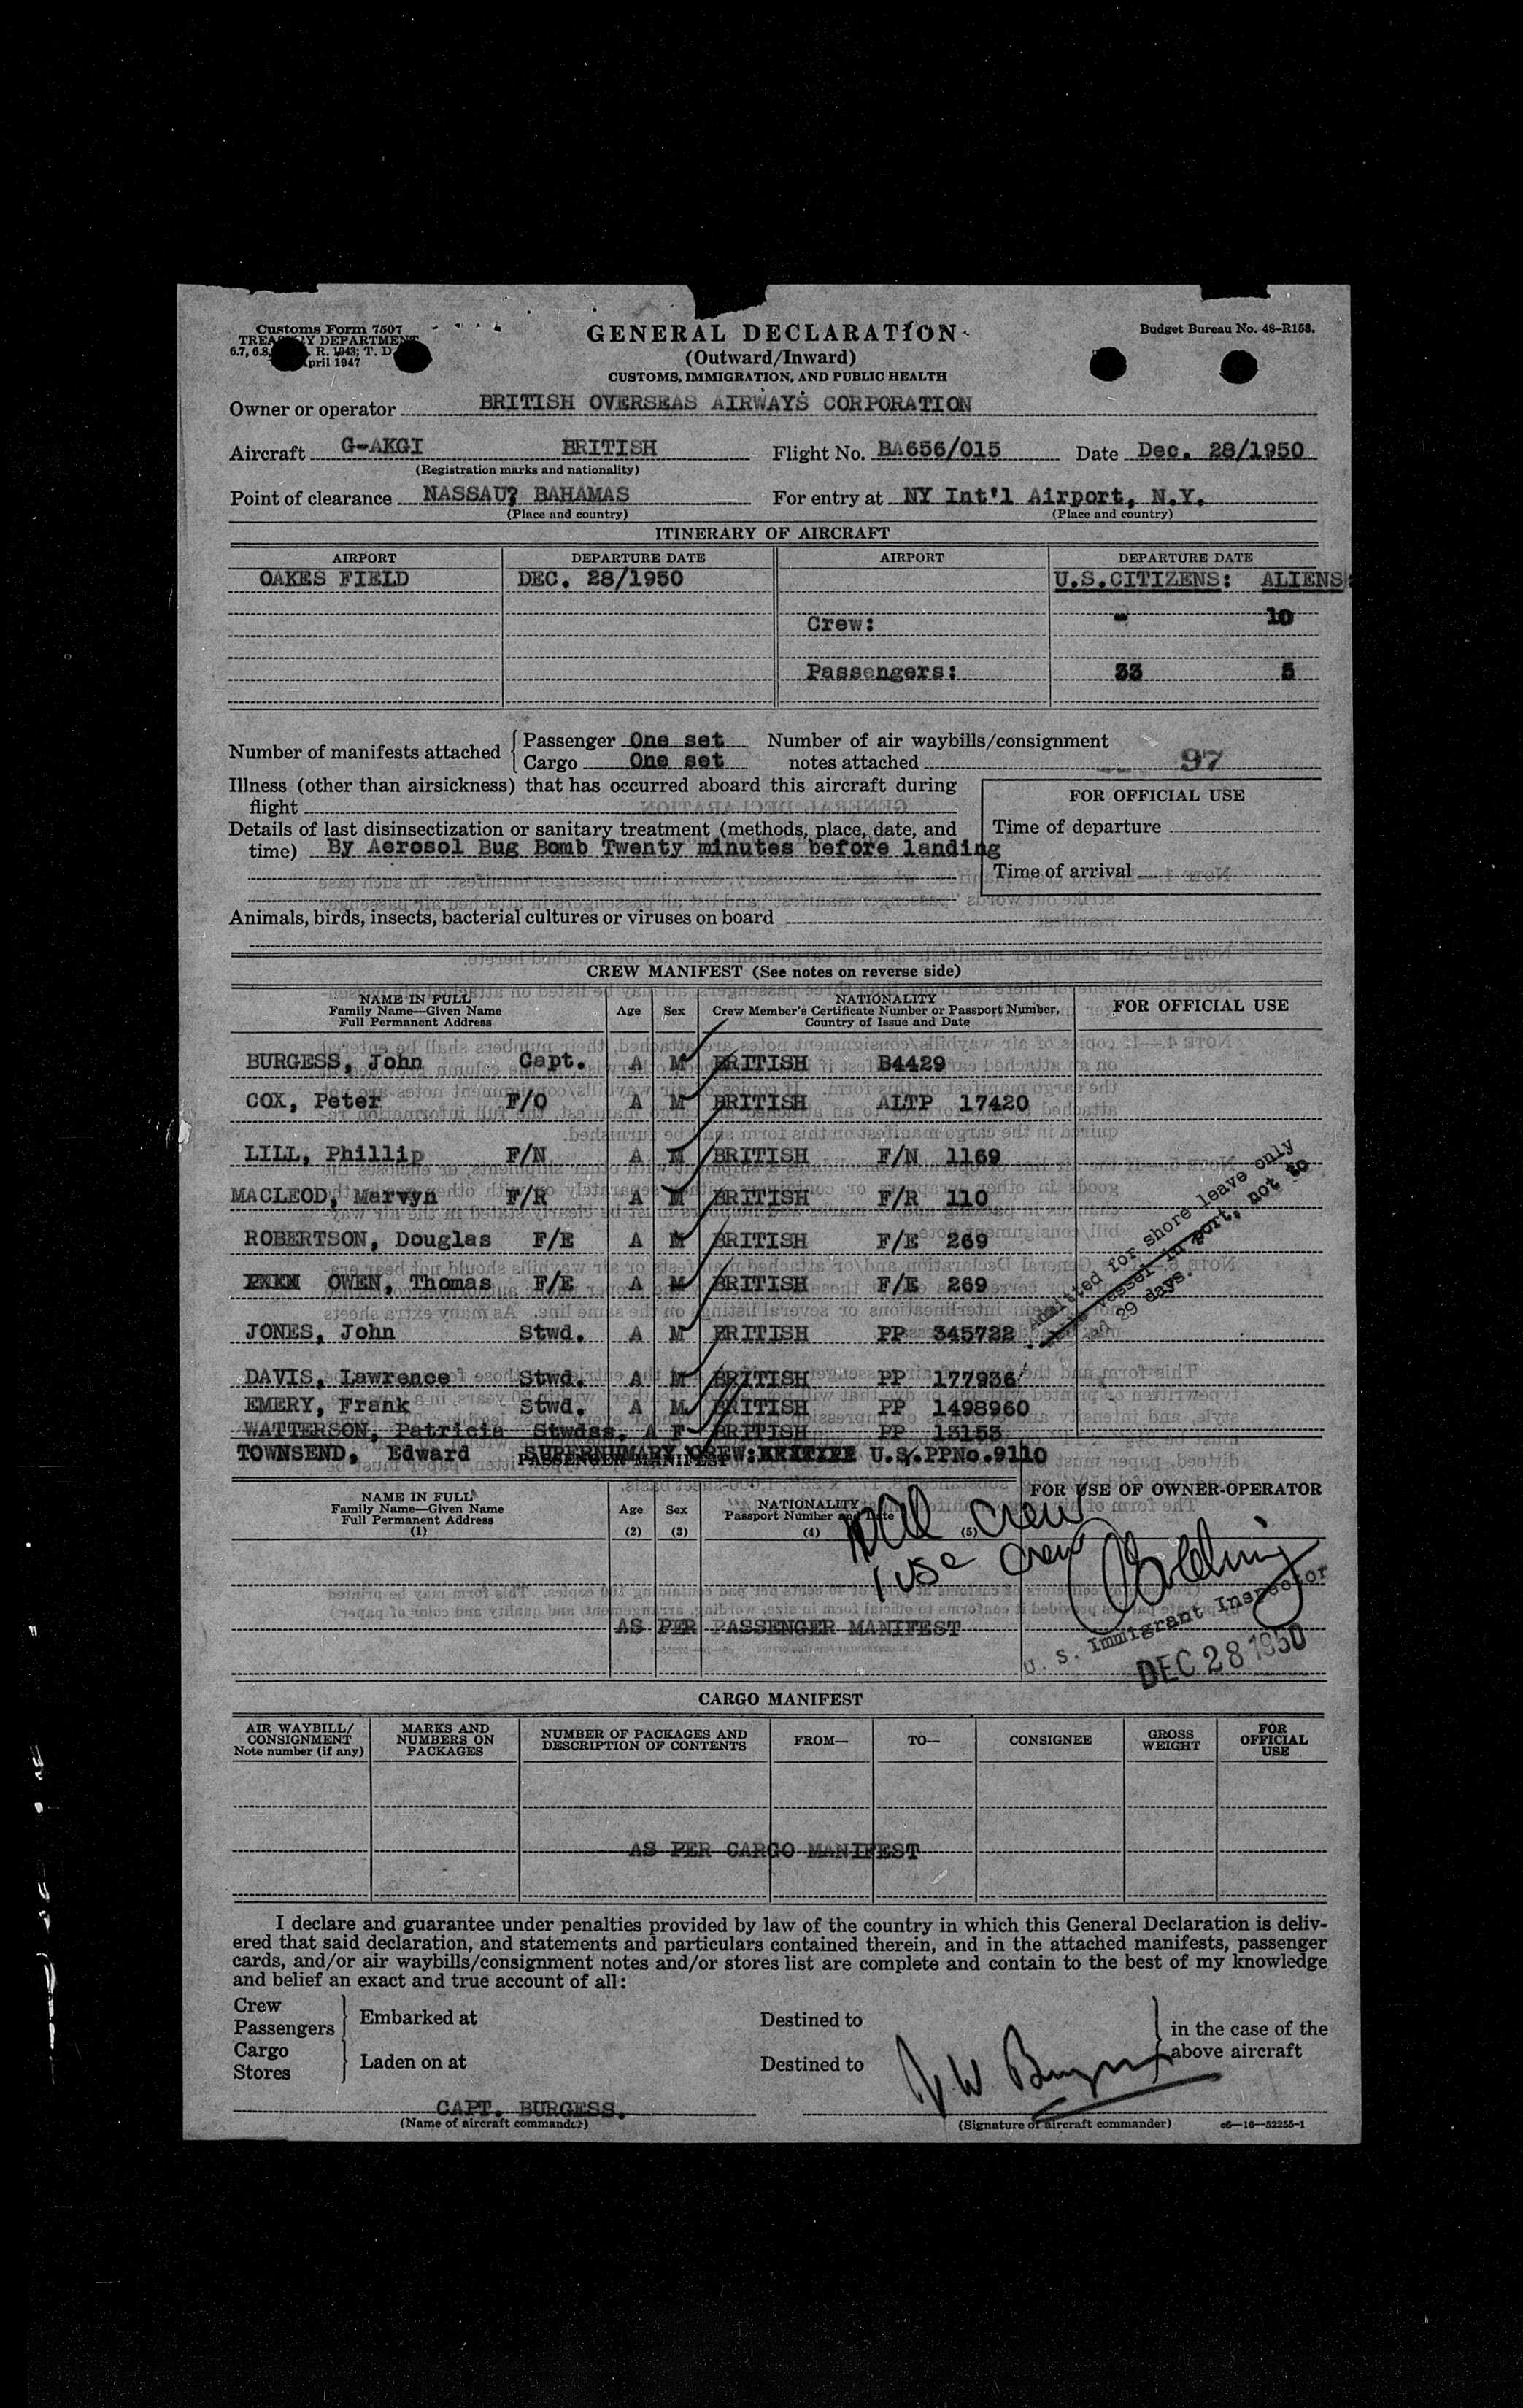 Customs Form 7507
TREASURY DEPARTMENT
6.7, 6.8, R. 1943; T. D.
April 1947
GENERAL DECLARATION
(Outward/Inward)
CUSTOMS, IMMIGRATION, AND PUBLIC HEALTH
Budget Bureau No. 48-R158.
Owner or operator BRITISH OVERSEAS AIRWAYS CORPORATION
Aircraft G-AKGI BRITISH Flight No. BA656/015 Date Dec. 28/1950
(Registration marks and nationality)
Point of clearance NASSAU? BAHAMAS For entry at NY Int'l Airport, N.Y.
(Place and country) (Place and country)
ITINERARY OF AIRCRAFT
AIRPORT DEPARTURE DATE AIRPORT DEPARTURE DATE
OAKES FIELD DEC. 28/1950 U.S.CITIZENS: ALIENS:
Crew: - 10
Passengers: 33 5
Number of manifests attached { Passenger One set Number of air waybills/consignment
Cargo One set notes attached 97
Illness (other than airsickness) that has occurred aboard this aircraft during
flight
FOR OFFICIAL USE
Details of last disinsectization or sanitary treatment (methods, place, date, and
time) By Aerosol Bug Bomb Twenty minutes before landing
Time of departure
Time of arrival
Animals, birds, insects, bacterial cultures or viruses on board
CREW MANIFEST (See notes on reverse side)
NAME IN FULL
Family Name—Given Name
Full Permanent Address
Age Sex
NATIONALITY
Crew Member's Certificate Number or Passport Number,
Country of Issue and Date
FOR OFFICIAL USE
BURGESS, John Capt. A M BRITISH B4429
COX, Peter F/O A M BRITISH ALTP 17420
LILL, Phillip F/N A M BRITISH F/N 1169
MACLEOD, Mervyn F/R A M BRITISH F/R 110
ROBERTSON, Douglas F/E A M BRITISH F/E 269
OWEN, Thomas F/E A M BRITISH F/E 269
JONES, John Stwd. A M BRITISH PP 345722
DAVIS, Lawrence Stwd. A M BRITISH PP 177936
EMERY, Frank Stwd. A M BRITISH PP 1498960
WATTERSON, Patricia Stwdss. A F BRITISH PP 13153
TOWNSEND, Edward SUPERNUMARY CREW: U.S.PPNo.9110
Admitted for shore leave only
vessel in port, not to
29 days.
PASSENGER MANIFEST
NAME IN FULL
Family Name—Given Name
Full Permanent Address
(1)
Age
(2)
Sex
(3)
NATIONALITY
Passport Number and Date
(4)
(5)
FOR USE OF OWNER-OPERATOR
crew
1 USC crew
U. S. Immigrant Inspector
DEC 28 1950
AS PER PASSENGER MANIFEST
CARGO MANIFEST
AIR WAYBILL/
CONSIGNMENT
Note number (if any)
MARKS AND
NUMBERS ON
PACKAGES
NUMBER OF PACKAGES AND
DESCRIPTION OF CONTENTS
FROM— TO— CONSIGNEE
GROSS
WEIGHT
FOR
OFFICIAL
USE
AS PER CARGO MANIFEST
I declare and guarantee under penalties provided by law of the country in which this General Declaration is deliv-
ered that said declaration, and statements and particulars contained therein, and in the attached manifests, passenger
cards, and/or air waybills/consignment notes and/or stores list are complete and contain to the best of my knowledge
and belief an exact and true account of all:
Crew
Passengers } Embarked at Destined to
Cargo
Stores } Laden on at Destined to
in the case of the
above aircraft
J.W. Burgess
CAPT. BURGESS.
(Name of aircraft commander) (Signature of aircraft commander) c6—16—52255-1